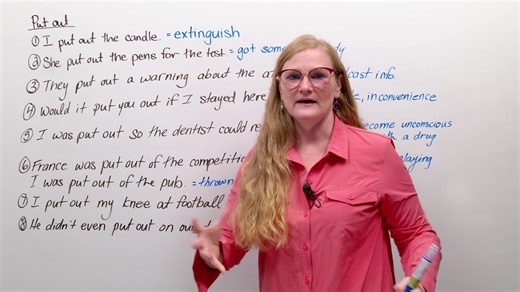 Put out
① I put out the candle. = extinguish
② She put out the pens for the test. = got
③ They put out a warning about the cast info.
④ Would it put you out if I stayed here inconvenience
⑤ I was put out so the dentist could become unconscious
with a drug
⑥ France was put out of the playing
I was put out of the pub. = thrown
⑦ I put out my knee at football
⑧ He didn't even put out on